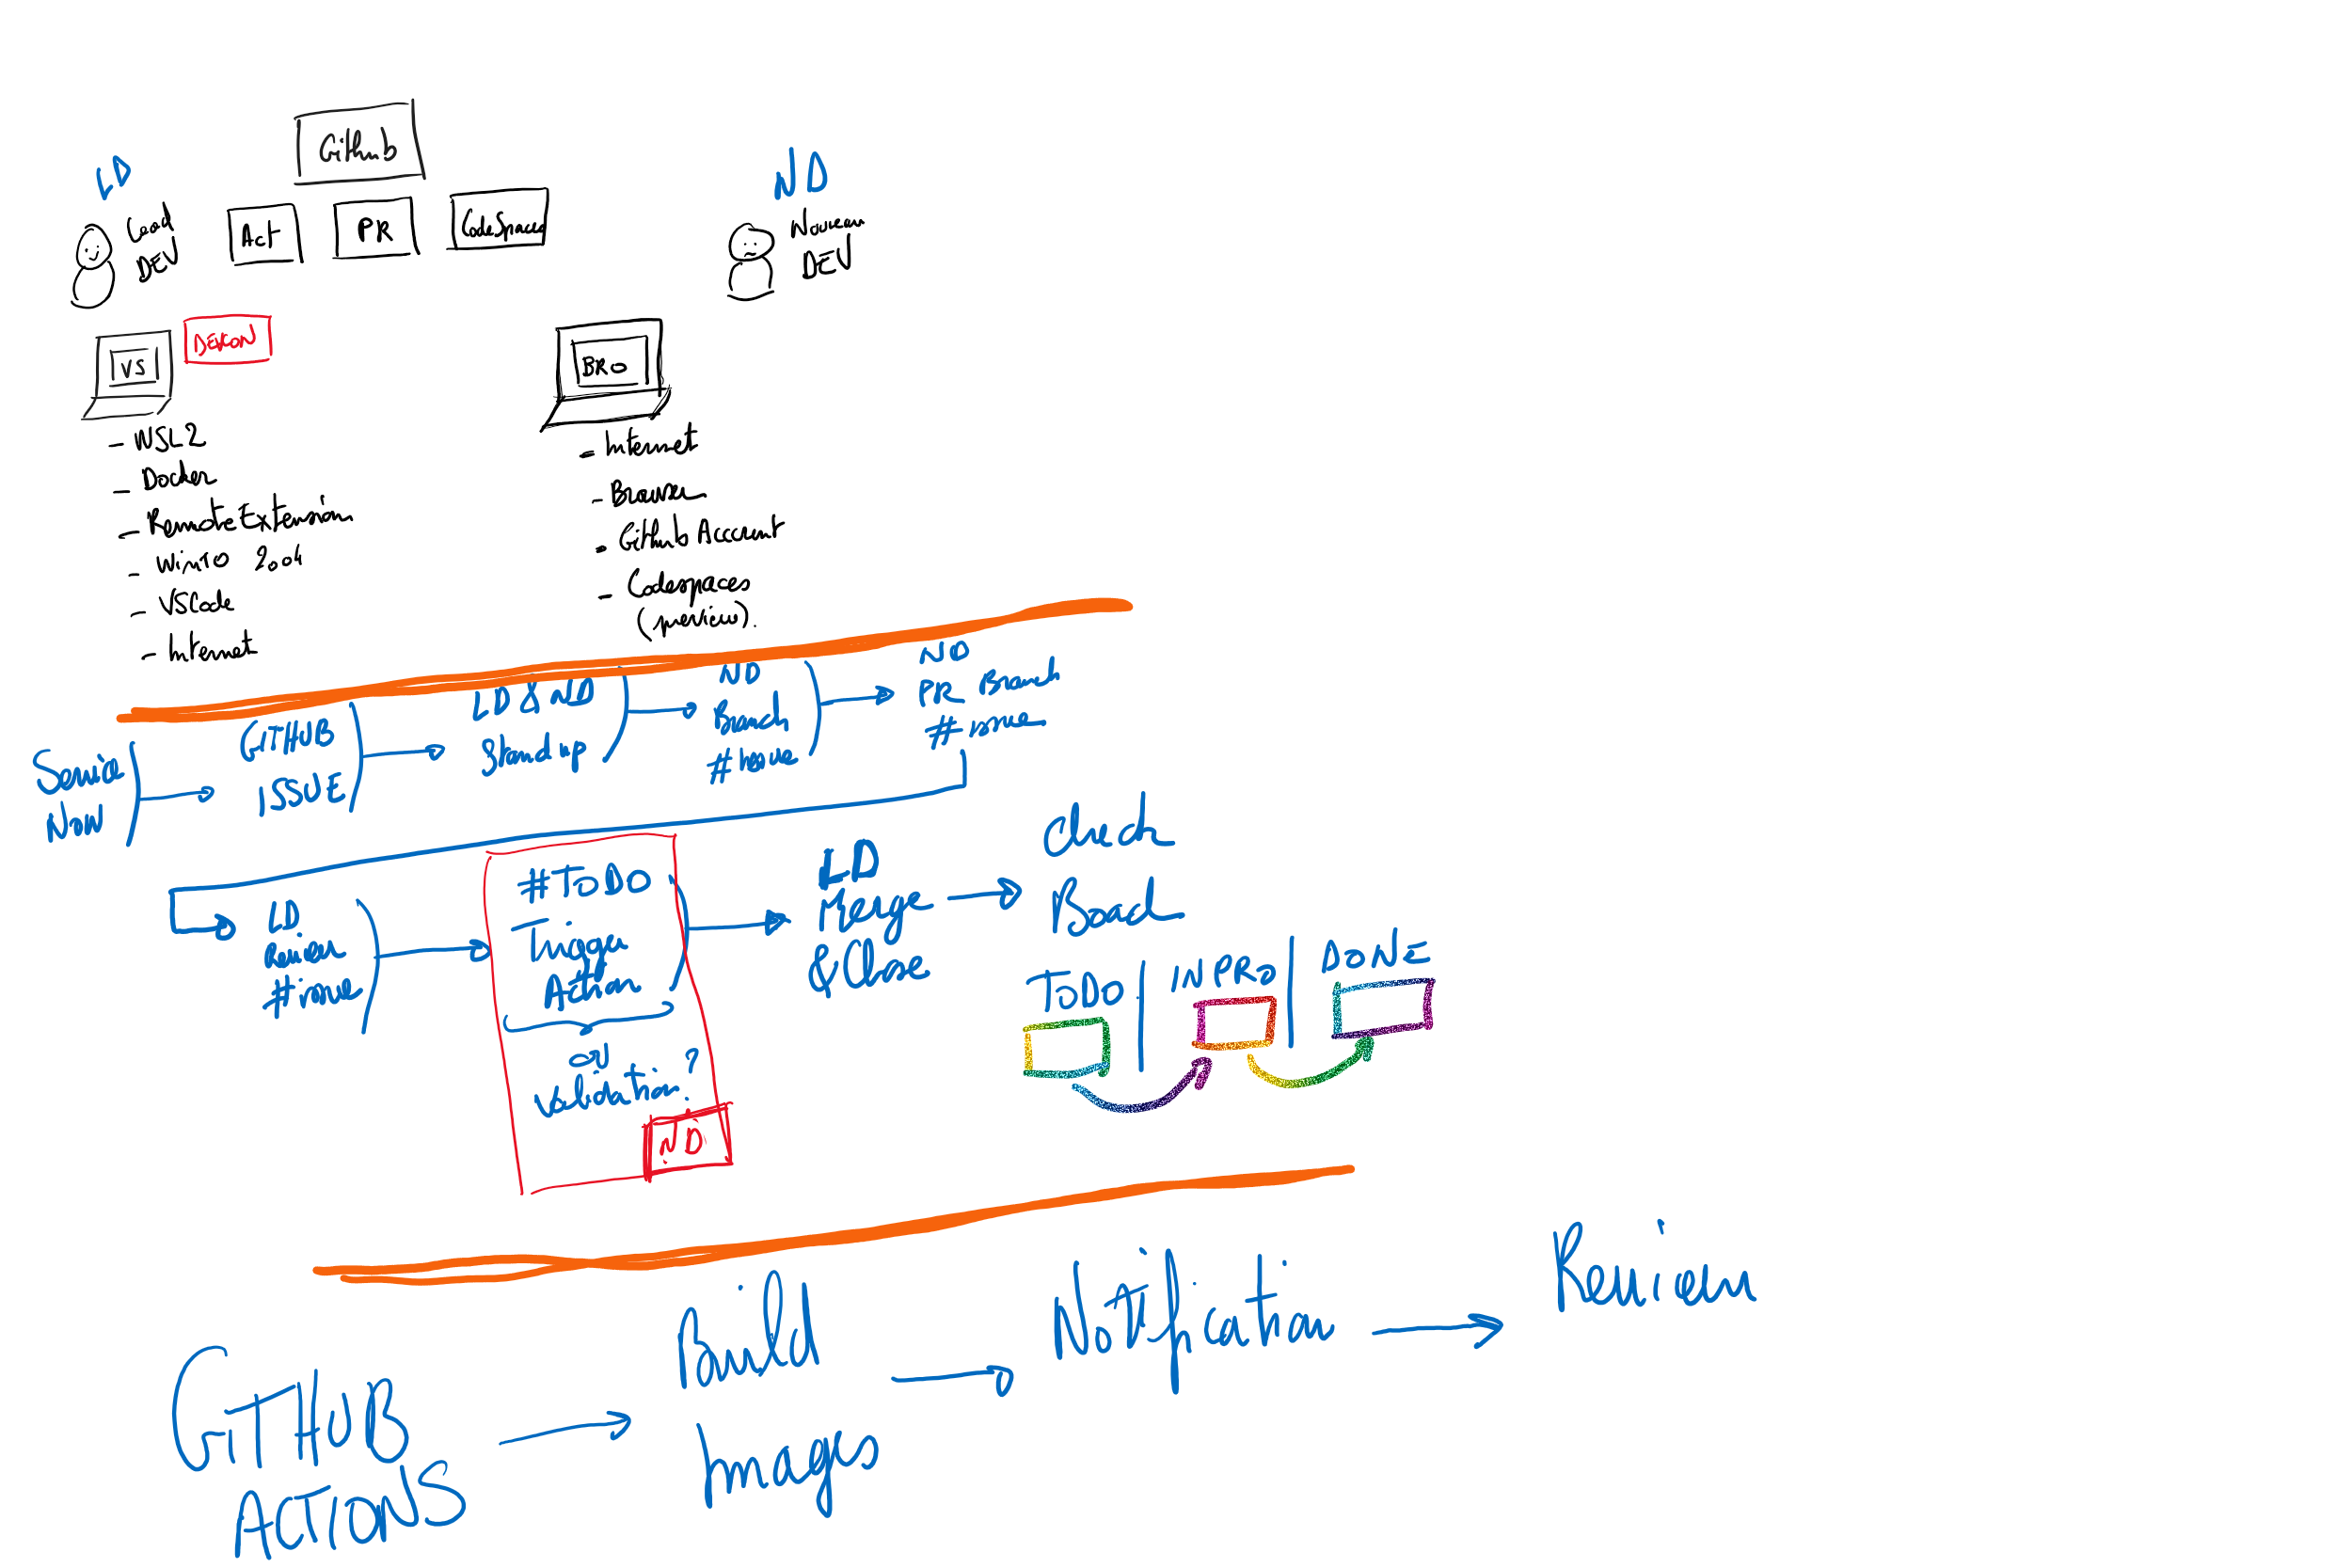 Github
LD
Lead
DEV
Act
PR
CodeSpaces
ND
Nouveau
DEV
VS
DEVCON
BRO
- WSL2
- Docker
- Remote Extension
- Win10 2004
- VSCode
- Internet
- Internet
- Browser
- Github Account
- Codespaces
(preview).
Service
Now
GITHUB
ISSUE
LD & ND
Stand up
ND
Branch
#Issue
ND
PR Branch
#issue
LD
Review
#issue
#TODO
Trigger
Action
OU
Validation?
ND
LD
Merge
& Close
Check
Board
TODO
INPRO
DONE
GITHUB
ACTIONS
Build
Images
Notification
Review